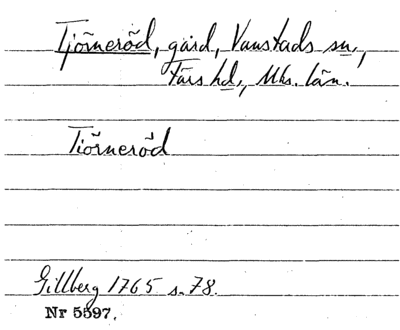 Tjörneröd, gård, Vanstads sn,
Färs hd, Mhs. län.
Tiörneröd
Gillberg 1765 s. 78.
Nr 5597.